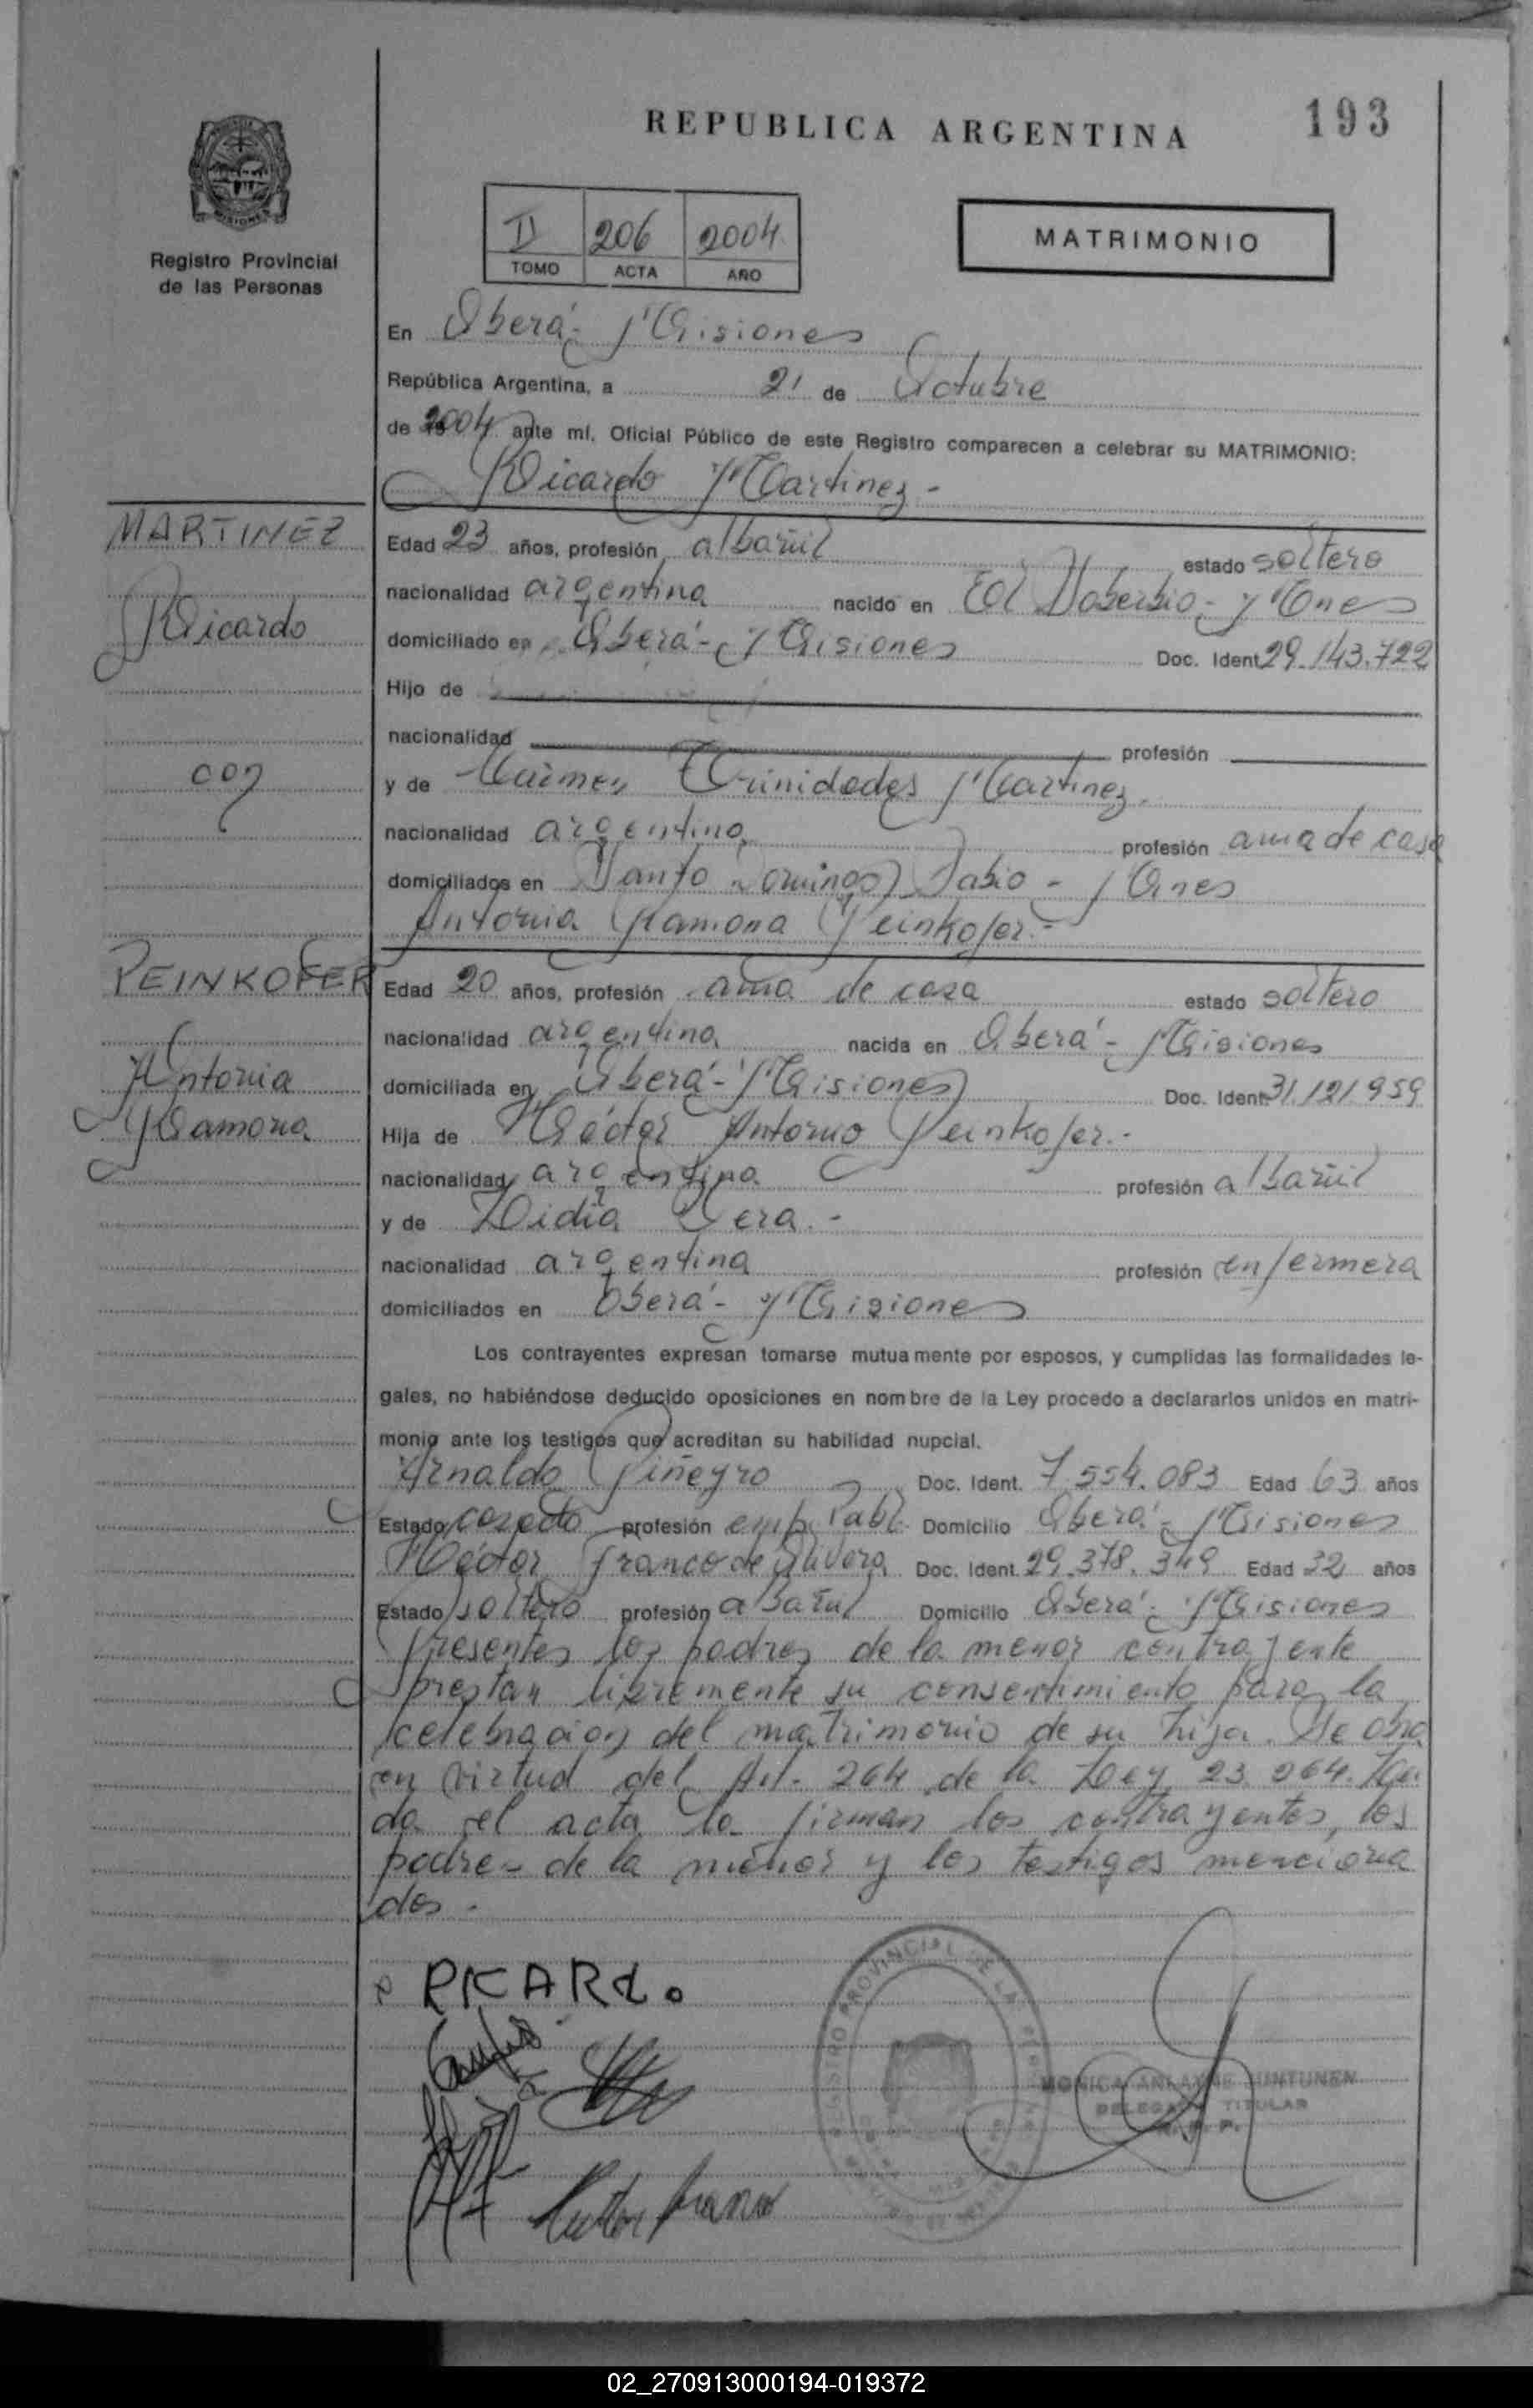 REPUBLICA ARGENTINA
193
MISIONES
Registro Provincial
de las Personas
II 206 2004
TOMO ACTA AÑO
MATRIMONIO
En Oberá - Misiones
República Argentina, a 21 de Octubre
de 2004 ante mí, Oficial Público de este Registro comparecen a celebrar su MATRIMONIO:
Ricardo Martinez -
MARTINEZ
Ricardo
con
PEINKOFER
Antonia
Ramona
Edad 23 años, profesión albañil estado soltero
nacionalidad argentina nacido en El Soberbio - Mnes
domiciliado en Oberá - Misiones Doc. Ident 29.143.722
Hijo de
nacionalidad profesión
y de Carmen Trinidades Martinez.
nacionalidad argentina profesión ama de casa
domiciliados en Santo Domingo Savio - Mnes
Antonia Ramona Peinkofer.-
Edad 20 años, profesión ama de casa estado soltero
nacionalidad argentina nacida en Oberá - Misiones
domiciliada en Oberá - Misiones Doc. Ident. 31.121.959
Hija de Héctor Antonio Peinkofer.-
nacionalidad argentina profesión albañil
y de Lidia Vera.-
nacionalidad argentina profesión enfermera
domiciliados en Oberá - Misiones
Los contrayentes expresan tomarse mutuamente por esposos, y cumplidas las formalidades le-
gales, no habiéndose deducido oposiciones en nombre de la Ley procedo a declararlos unidos en matri-
monio ante los testigos que acreditan su habilidad nupcial.
Arnaldo Piñeyro Doc. Ident. 7.554.083 Edad 63 años
Estado casado profesión emp. Publ. Domicilio Oberá - Misiones
Héctor Franco de Olivera Doc. Ident. 29.378.349 Edad 32 años
Estado soltero profesión albañil Domicilio Oberá - Misiones
Presentes los padres de la menor contrayente
prestan libremente su consentimiento para la
celebracion del matrimonio de su hija. Se obra
en virtud del Art. 264 de la Ley 23.264. Lei
da el acta la firman los contrayentes, los
padres de la menor y los testigos menciona
dos.-
RICARdo
Hector Franco
REGISTRO PROVINCIAL DE LAS PERSONAS
MONICA ARLAYNE JUNTUNEN
DELEGADA TITULAR
R. P. P.
02_270913000194-019372